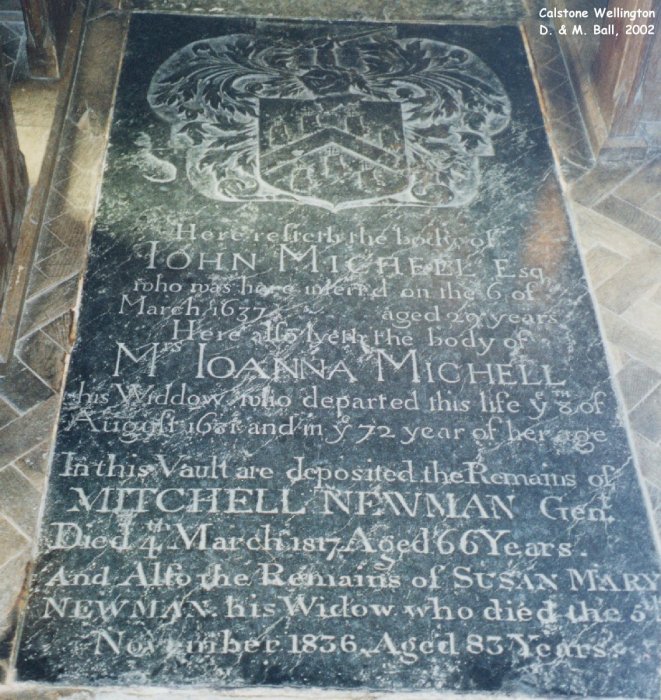 Calstone Wellington
D. & M. Ball, 2002
Here resteth the body of
IOHN MICHELL Esq
who was here interred on the 6 of
March 1637 aged 29 years
Here also lyeth the body of
Mrs IOANNA MICHELL
his Widdow, who departed this life ye 8th of
August 1681 and in ye 72 year of her age
In this Vault are deposited the Remains of
MITCHELL NEWMAN Gen.
Died 4th March 1817, Aged 66 Years.
And Also the Remains of SUSAN MARY
NEWMAN, his Widow who died the 5th
November 1836, Aged 83 Years.